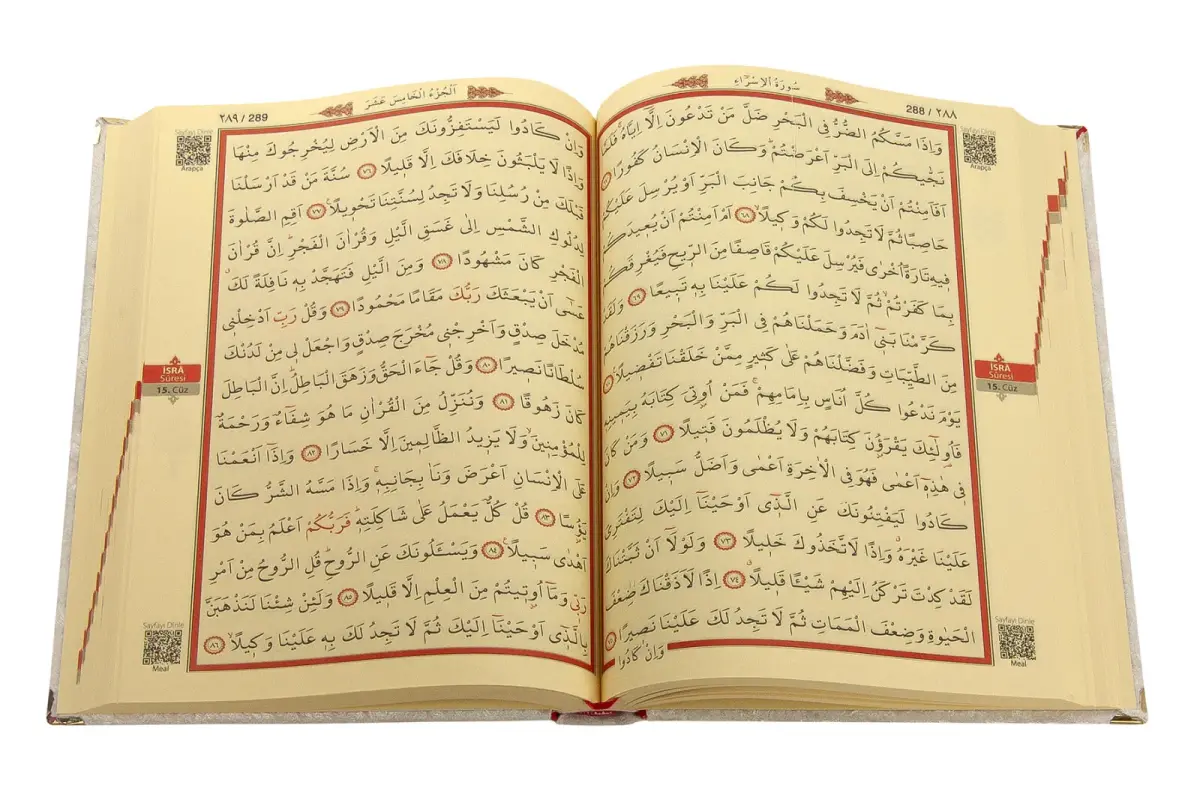 سُورَةُ الْاِسْرَٓاءِ
288 / ٢٨٨
Sayfayı Dinle
Arapça
وَاِذَا مَسَّكُمُ الضُّرُّ فِي الْبَحْرِ ضَلَّ مَنْ تَدْعُونَ اِلَّٓا اِيَّاهُ فَلَمَّا
نَجّٰيكُمْ اِلَى الْبَرِّ اَعْرَضْتُمْ وَكَانَ الْاِنْسَانُ كَفُورًا ٦٧
اَفَاَمِنْتُمْ اَنْ يَخْسِفَ بِكُمْ جَانِبَ الْبَرِّ اَوْ يُرْسِلَ عَلَيْكُمْ
حَاصِبًا ثُمَّ لَا تَجِدُوا لَكُمْ وَكِيلًا ٦٨ اَمْ اَمِنْتُمْ اَنْ يُعِيدَكُمْ
فِيهِ تَارَةً اُخْرٰى فَيُرْسِلَ عَلَيْكُمْ قَاصِفًا مِنَ الرِّيحِ فَيُغْرِقَكُمْ
بِمَا كَفَرْتُمْ ثُمَّ لَا تَجِدُوا لَكُمْ عَلَيْنَا بِهِ تَبِيعًا ٦٩ وَلَقَدْ
كَرَّمْنَا بَنِٓي اٰدَمَ وَحَمَلْنَاهُمْ فِي الْبَرِّ وَالْبَحْرِ وَرَزَقْنَاهُمْ
مِنَ الطَّيِّبَاتِ وَفَضَّلْنَاهُمْ عَلٰى كَثِيرٍ مِمَّنْ خَلَقْنَا تَفْضِيلًا
يَوْمَ نَدْعُوا كُلَّ اُنَاسٍ بِاِمَامِهِمْ فَمَنْ اُو۫تِيَ كِتَابَهُ بِيَمِينِهِ
فَاُو۬لٰٓئِكَ يَقْرَؤُ۫نَ كِتَابَهُمْ وَلَا يُظْلَمُونَ فَتِيلًا ٧١ وَمَنْ كَانَ
فِي هٰذِهِٓ اَعْمٰى فَهُوَ فِي الْاٰخِرَةِ اَعْمٰى وَاَضَلُّ سَبِيلًا ٧٢ وَاِنْ
كَادُوا لَيَفْتِنُونَكَ عَنِ الَّذِٓي اَوْحَيْنَٓا اِلَيْكَ لِتَفْتَرِيَ
عَلَيْنَا غَيْرَهُ وَاِذًا لَاتَّخَذُوكَ خَلِيلًا ٧٣ وَلَوْلَٓا اَنْ ثَبَّتْنَاكَ
لَقَدْ كِدْتَ تَرْكَنُ اِلَيْهِمْ شَيْـًٔا قَلِيلًا ٧٤ اِذًا لَاَذَقْنَاكَ ضِعْفَ
الْحَيٰوةِ وَضِعْفَ الْمَمَاتِ ثُمَّ لَا تَجِدُ لَكَ عَلَيْنَا نَصِيرًا
وَاِنْ كَادُوا
İSRÂ
Sûresi
15. Cüz
Sayfayı Dinle
Meal
اَلْجُزْءُ الْخَامِسَ عَشَرَ
٢٨٩ / 289
Sayfayı Dinle
Arapça
وَاِنْ كَادُوا لَيَسْتَفِزُّونَكَ مِنَ الْاَرْضِ لِيُخْرِجُوكَ مِنْهَا
وَاِذًا لَا يَلْبَثُونَ خِلَافَكَ اِلَّا قَلِيلًا ٧٦ سُنَّةَ مَنْ قَدْ اَرْسَلْنَا
قَبْلَكَ مِنْ رُسُلِنَا وَلَا تَجِدُ لِسُنَّتِنَا تَحْوِيلًا ٧٧ اَقِمِ الصَّلٰوةَ
لِدُلُوكِ الشَّمْسِ اِلٰى غَسَقِ الَّيْلِ وَقُرْاٰنَ الْفَجْرِ اِنَّ قُرْاٰنَ
الْفَجْرِ كَانَ مَشْهُودًا ٧٨ وَمِنَ الَّيْلِ فَتَهَجَّدْ بِهِ نَافِلَةً لَكَ
عَسٰٓى اَنْ يَبْعَثَكَ رَبُّكَ مَقَامًا مَحْمُودًا ٧٩ وَقُلْ رَبِّ اَدْخِلْنِي
مُدْخَلَ صِدْقٍ وَاَخْرِجْنِي مُخْرَجَ صِدْقٍ وَاجْعَلْ لِي مِنْ لَدُنْكَ
سُلْطَانًا نَصِيرًا ٨٠ وَقُلْ جَٓاءَ الْحَقُّ وَزَهَقَ الْبَاطِلُ اِنَّ الْبَاطِلَ
كَانَ زَهُوقًا ٨١ وَنُنَزِّلُ مِنَ الْقُرْاٰنِ مَا هُوَ شِفَٓاءٌ وَرَحْمَةٌ
لِلْمُؤْمِنِينَ وَلَا يَزِيدُ الظَّالِمِينَ اِلَّا خَسَارًا ٨٢ وَاِذَٓا اَنْعَمْنَا
عَلَى الْاِنْسَانِ اَعْرَضَ وَنَاٰ بِجَانِبِهِ وَاِذَا مَسَّهُ الشَّرُّ كَانَ
يَؤُ۫سًا ٨٣ قُلْ كُلٌّ يَعْمَلُ عَلٰى شَاكِلَتِهِ فَرَبُّكُمْ اَعْلَمُ بِمَنْ هُوَ
اَهْدٰى سَبِيلًا ٨٤ وَيَسْـَٔلُونَكَ عَنِ الرُّوحِ قُلِ الرُّوحُ مِنْ اَمْرِ
رَبِّي وَمَٓا اُو۫تِيتُمْ مِنَ الْعِلْمِ اِلَّا قَلِيلًا ٨٥ وَلَئِنْ شِئْنَا لَنَذْهَبَنَّ
بِالَّذِٓي اَوْحَيْنَٓا اِلَيْكَ ثُمَّ لَا تَجِدُ لَكَ بِهِ عَلَيْنَا وَكِيلًا ٨٦
İSRÂ
Sûresi
15. Cüz
Sayfayı Dinle
Meal